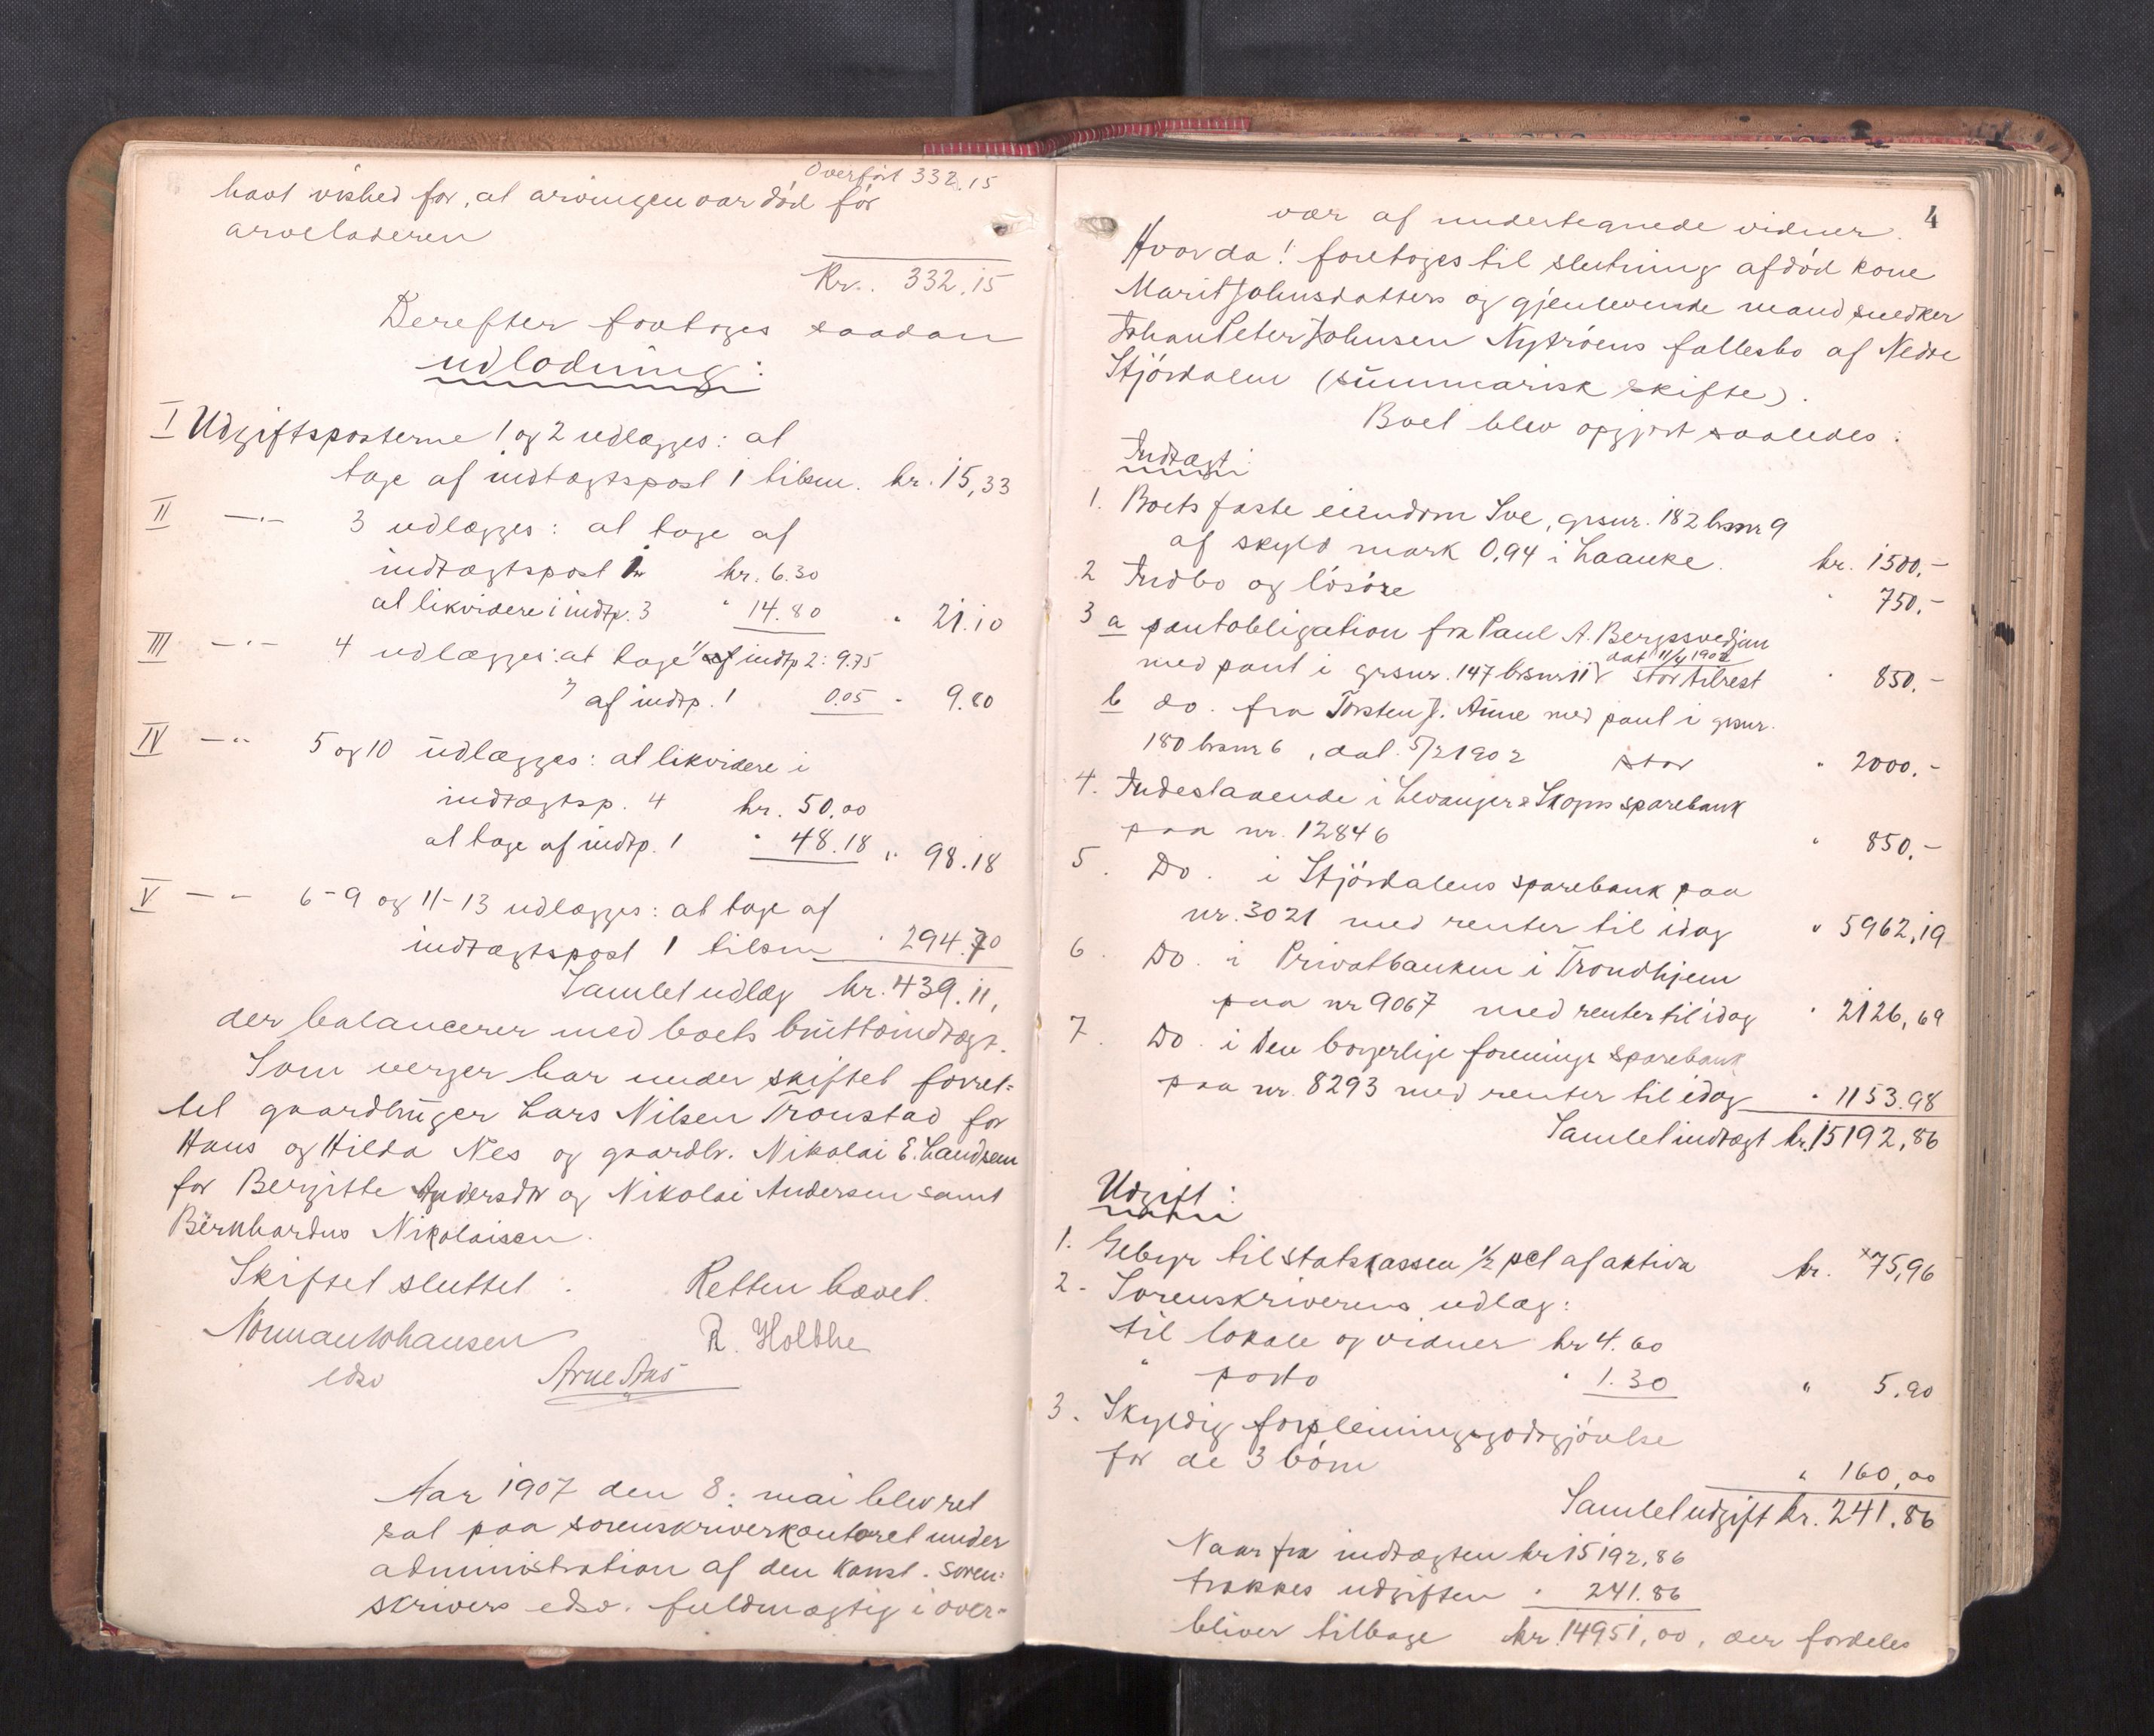 Overført 332.15
havt vished for, at arvingen var død før
arveladeren
Kr. 332.15
Derefter foretoges saadan
udlodning:
I Udgiftsposterne 1 og 2 udlægges: at
tage af indtægtspost 1 tilsm. kr. 15,33
II —"— 3 udlægges: at tage af
indtægtspost 1 kr. 6.30
at likvidere i indtp. 3 " 14.80 " 21.10
III —"— 4 udlægges: at tage af indtp 2: 9.75
af indtp. 1 0.05 " 9.80
IV —"— 5 og 10 udlægges: at likvidere i
indtægtsp. 4 kr. 50,00
at tage af indtp. 1 " 48.18 " 98.18
V —"— 6-9 og 11-13 udlægges: at tage af
indtægtspost 1 tilsm " 294.70
Samlet udlæg kr. 439.11,
der balancerer med boets bruttoindtægt.
Som verger har under skiftet forret-
tet gaardbruger Lars Nilsen Tronstad for
Hans og Hilda Nes og gaardbr. Nikolai E. Landsem
for Bergitte Andersdtr og Nikolai Andersen samt
Bernhardus Nikolaisen.
Skiftet sluttet. Retten hævet.
Normann Johansen R. Holthe
edsv Arne Aas
Aar 1907 den 8. mai blev ret
sat paa sorenskriverkontoret under
administration af den konst. soren-
skrivers edsv. fuldmægtig i over-
4
vær af undertegnede vidner.
Hvorda! foretoges til slutning afdød kone
Marit Johnsdatters og gjenlevende mand snedker
Johan Peter Johnsen Nytrøens fællesbo af Nedre
Stjørdalen (summarisk skifte).
Boet blev opgjort saaledes:
Indtægt:
1. Boets faste eiendom Sve, grsnr. 182 brsnr 9
af skyld mark 0,94 i Laanke. kr. 1500.-
2 Indbo og løsøre " 750.-
3 a pantobligation fra Paul A. Bergssvedjan
dat 11/4 1902
med pant i grsnr. 147 brsnr 11 stor tilrest " 850.-
b do. fra Torsten J. Aune med pant i grsnr.
180 brsnr 6, dat. 5/2 1902 stor " 2000.-
4. Indestaaende i Levanger & Skogns sparebank
paa nr. 12846 " 850.-
5. Do. i Stjørdalens sparebank paa
nr. 3021 med renter til idag " 5962,19
6. Do. i Privatbanken i Trondhjem
paa nr 9067 med renter til idag " 2126,69
7. Do. i Den borgerlige forenings sparebank
paa nr. 8293 med renter til idag " 1153.98
Samlet indtægt kr. 15192,86
Udgift:
1. Gebyr til statskassen 1/2 pct af aktiva kr. x75,96
2. Sorenskriverens udlæg:
til lokale og vidner kr 4.60
" porto " 1.30 " 5.90
3. Skyldig forpleiningsgodtgjørelse
for de 3 børn " 160,00
Samlet udgift kr. 241,86
Naar fra indtægten kr 15192,86
trækkes udgiften " 241.86
bliver tilbage kr. 14951,00, der fordeles